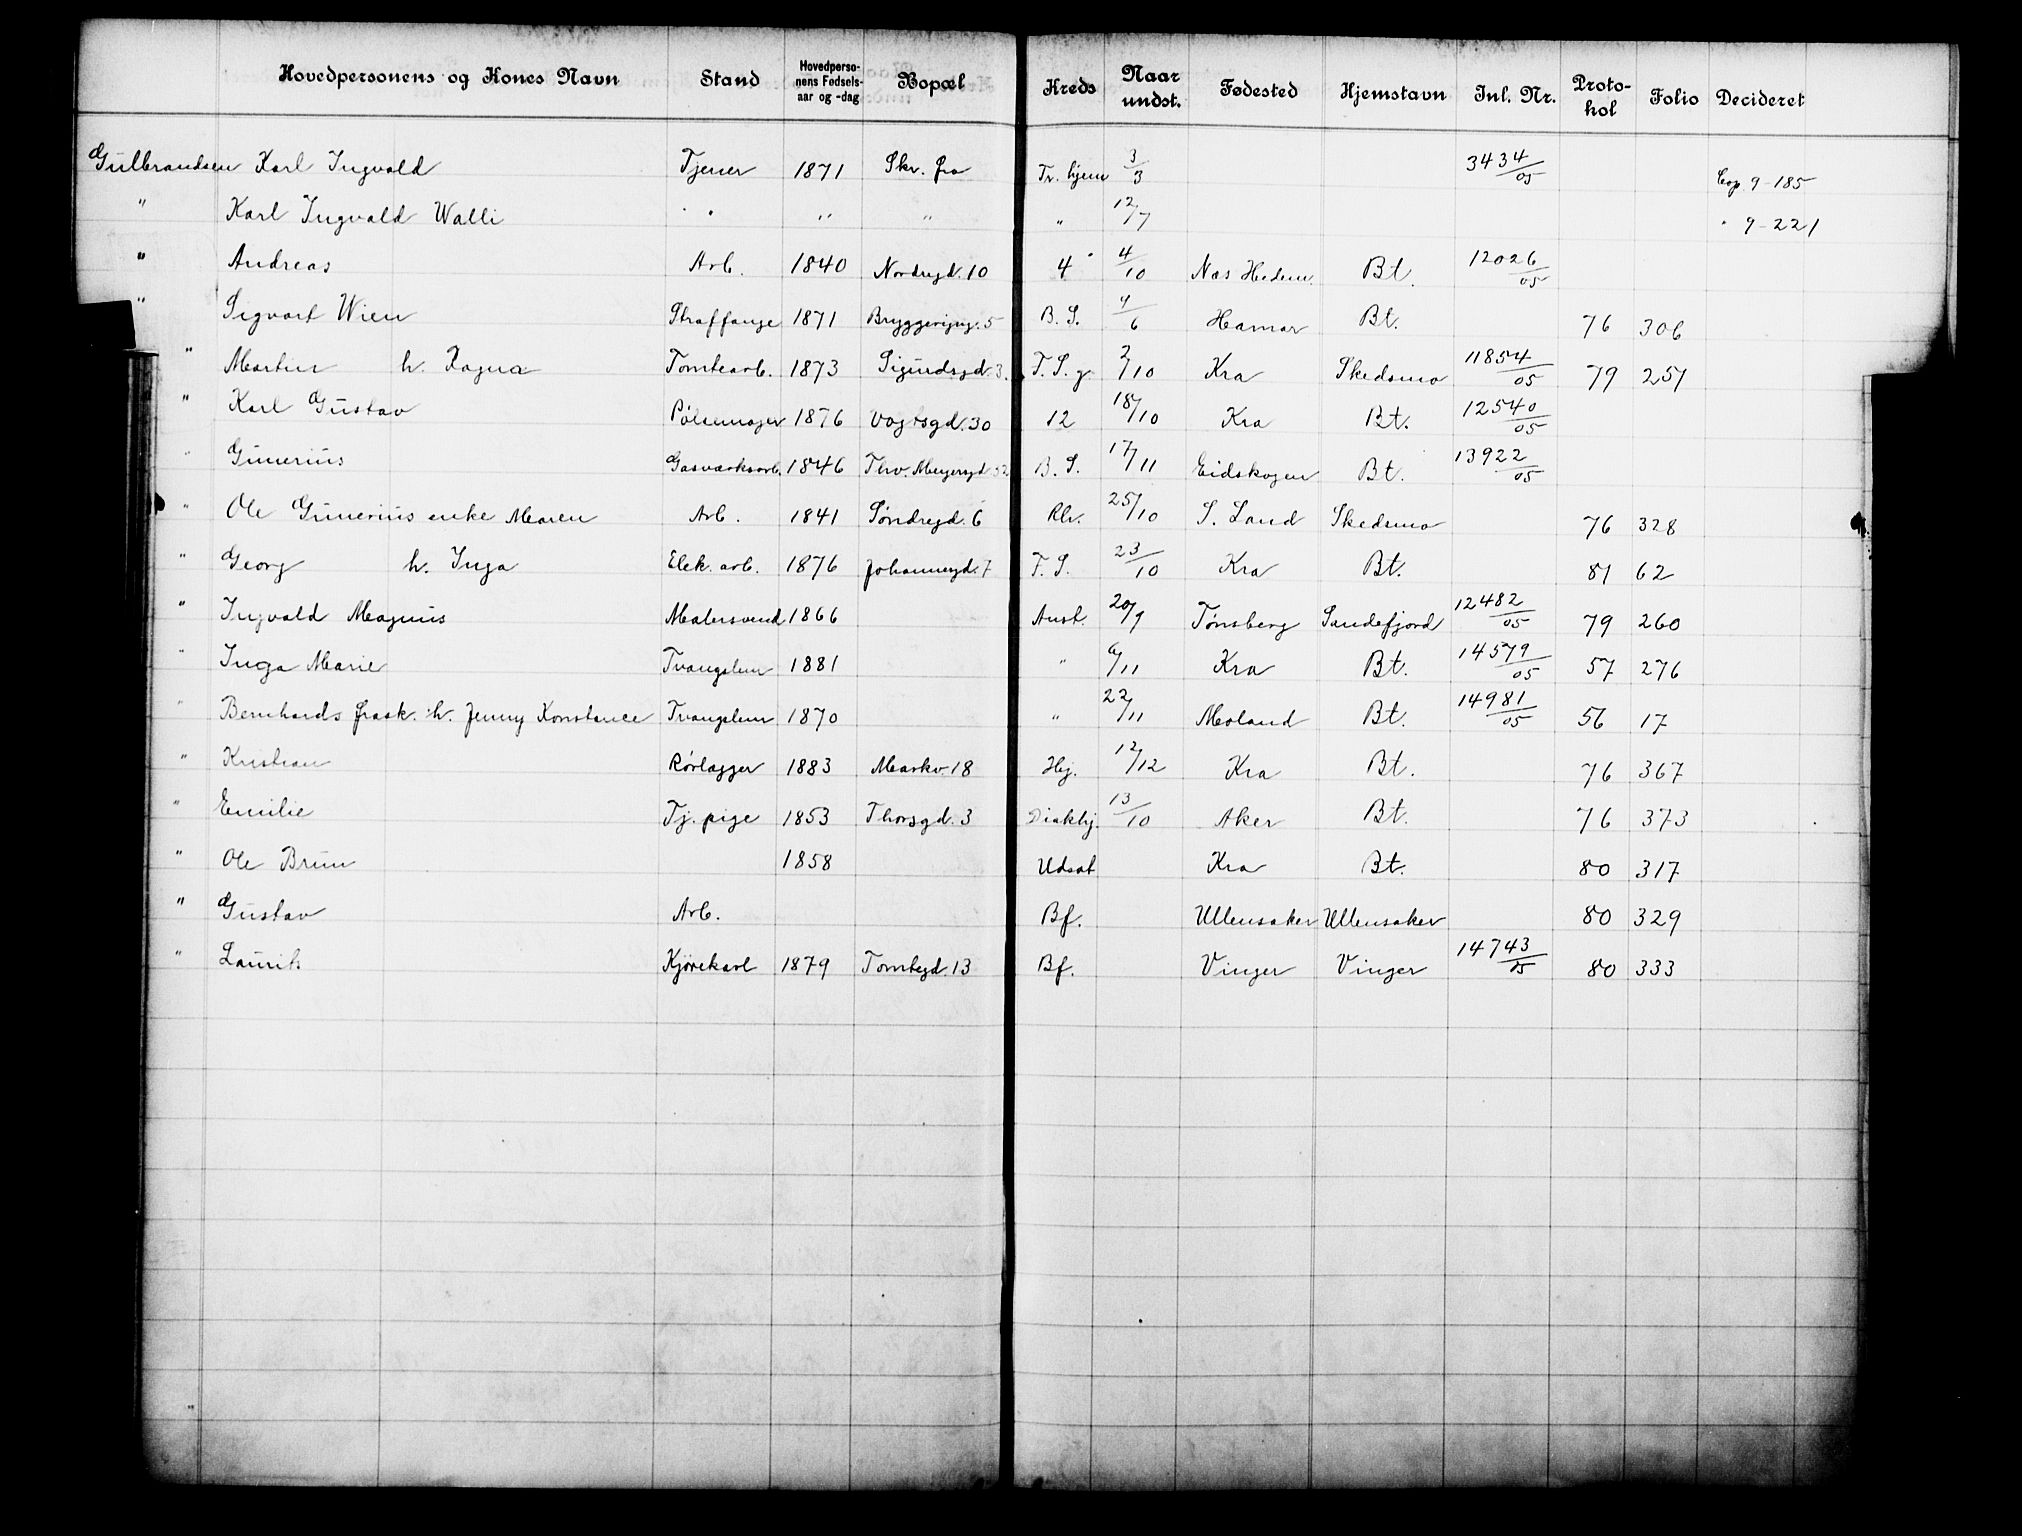 Hovedpersonens og Kones Navn Stand Hovedpersonens Fødselsaar og -dag Bopæl Kreds Naar undst. Fødested Hjemstavn Inl. Nr. Protokol Folio Decideret
Gulbrandsen Karl Ingvald Tjener 1871 Skr. fra Tr. hjem 3/3 3434/05 Cop. 9-185
" Karl Ingvald Walli " " " " 12/7 " 9-221
" Andreas Arb. 1840 Nordregd. 10 4 4/10 Nes Hedem. Bt. 12026/05
" Sigvart Wien Straffange 1871 Bryggerijng. 5 B. S. 9/6 Hamar Bt. 76 306
" Martin h. Ragna Tomtearb. 1873 Sigurdsgd. 3. F. S. g 2/10 Kra Skedsmo 11854/05 79 257
" Karl Gustav Pølsemager 1876 Vogtsgd. 30 12 18/10 Kra Bt. 12540/05
" Gunerius Gasværksarb. 1846 Thv. Meyersgd. 52 B. S. 17/11 Eidskogen Bt. 13922/05
" Ole Gunerius enke Maren Arb. 1841 Søndregd. 6 Rh. 25/10 S. Land Skedsmo 76 328
" Georg h. Inga Elek. arb. 1876 Johannesgd. 7 F. S. 23/10 Kra Bt. 81 62
" Ingvald Magnus Malersvend 1866 Anst. 20/9 Tønsberg Sandefjord 12482/05 79 260
" Inga Marie Tvangslem 1881 " 6/11 Kra Bt. 14579/05 57 276
" Bernhards frask. h. Jenny Konstance Tvangslem 1870 " 22/11 Moland Bt. 14981/05 56 17
" Kristian Rørlægger 1883 Markv. 18 Hj. 12/12 Kra Bt. 76 367
" Emilie Tj. pige 1853 Thorsgd. 3 Diakhj. 13/10 Aker Bt. 76 373
" Ole Brun 1858 Udsat Kra Bt. 80 317
" Gustav Arb. Bf. Ullensaker Ullensaker 80 329
" Laurits Kjørekarl 1879 Tomtegd. 13 Bf. Vinger Vinger 14743/05 80 333